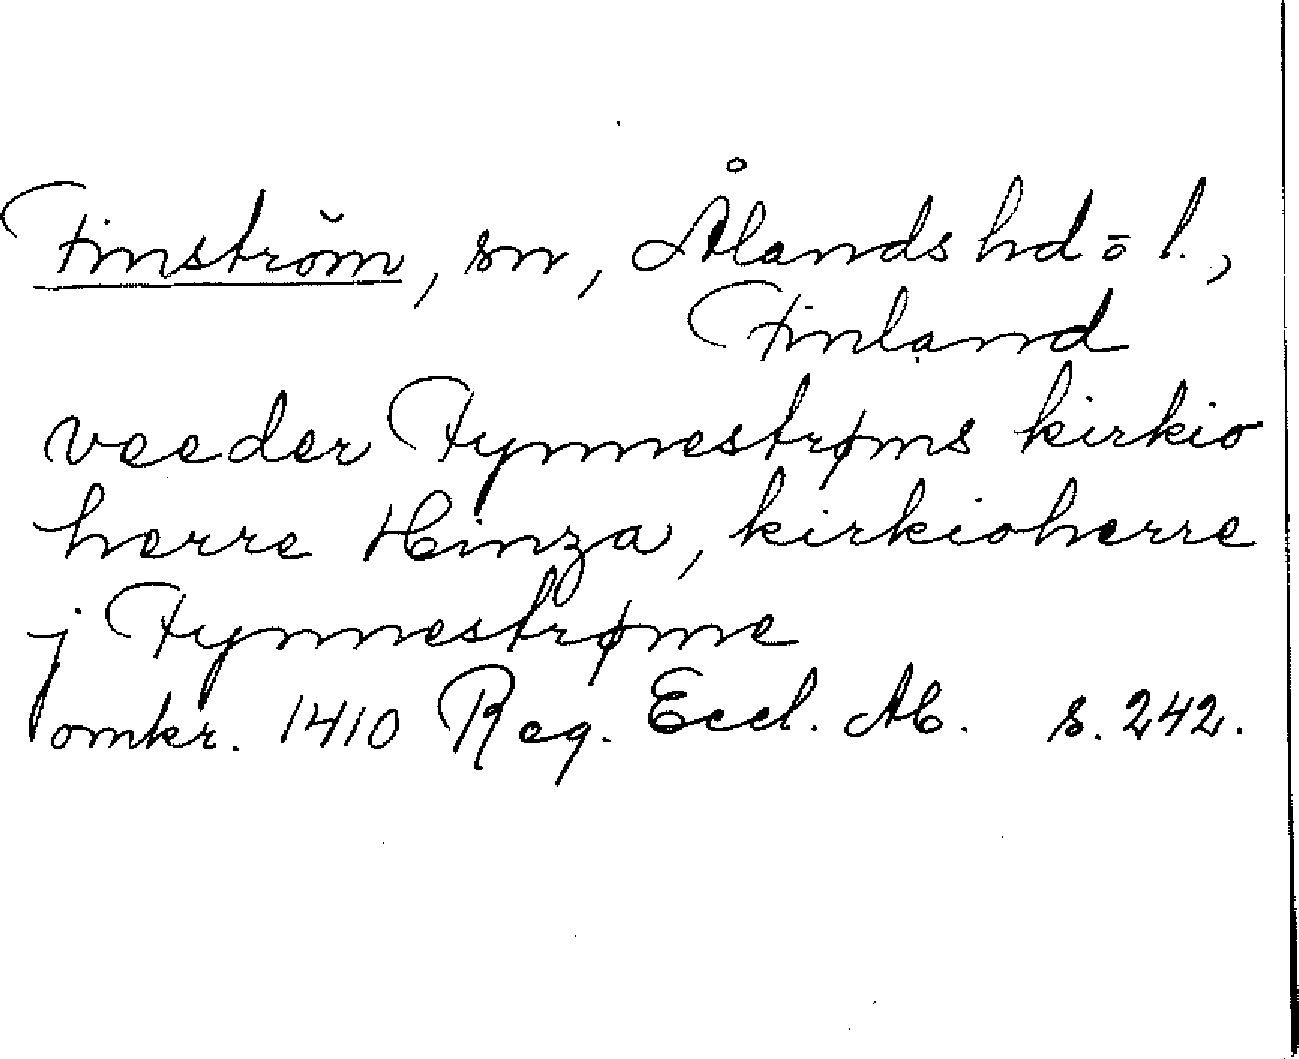 Finström, sn, Ålands hd o l.,
Finland
veeder Fynnestrøms kirkio
herre Hinza, kirkioherre
j Fynnestrøme
omkr. 1410 Reg. Eccl. Ab. s. 242.